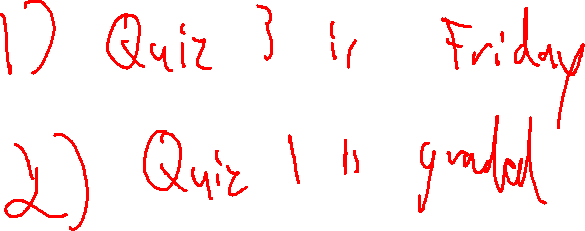 1) Quiz 3 is Friday
2) Quiz 1 is graded